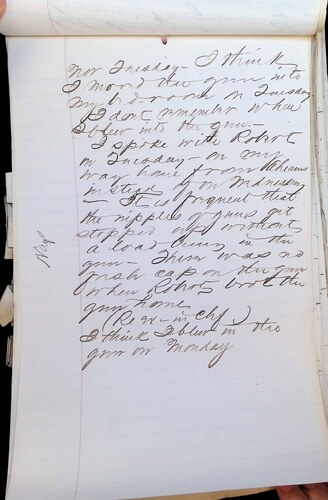 nor Tuesday - I think
I moved the gun into
my bed-room on Tuesday
I don't remember when
I blew into the gun -
I spoke with Robert
on Tuesday - on my
way home from
instead of on Wednesday
- It is frequent that
the nipples of guns get
stopped up without
a load being in the
gun - There was no
fresh cap on the gun
when Roberts brot the
gun home
(Re ex - in chf)
I think I blew in the
gun on Monday